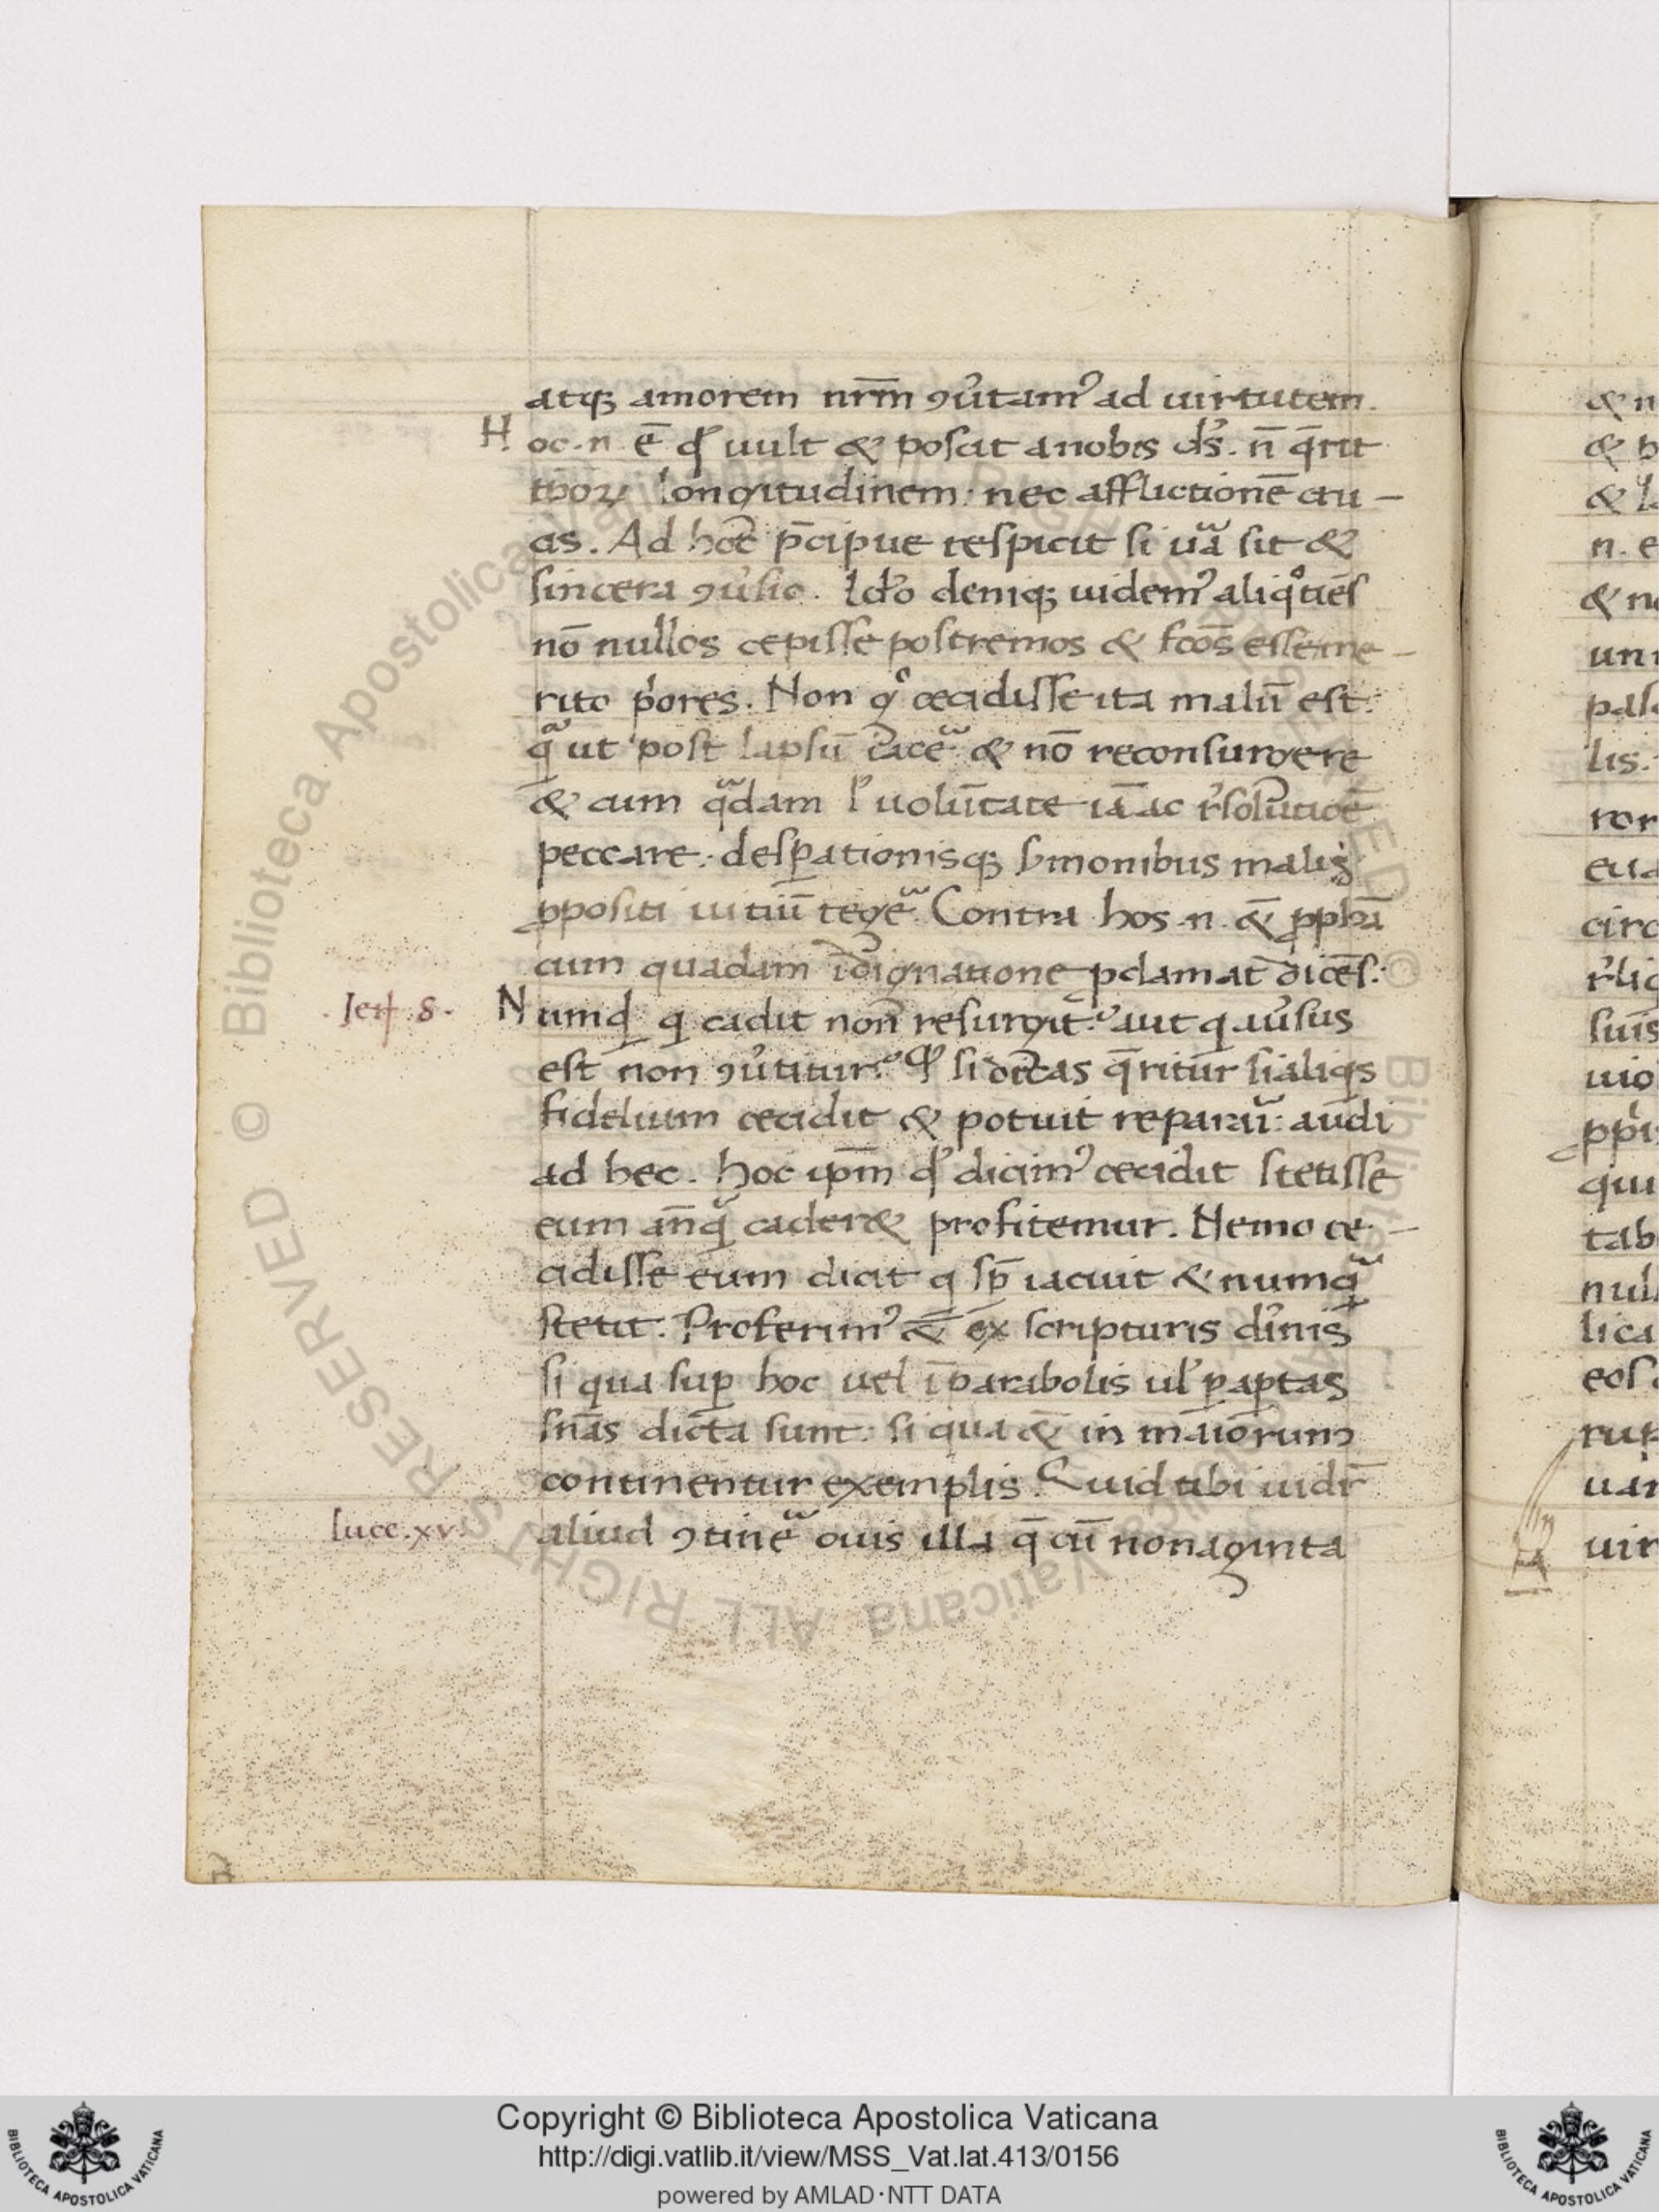 atqꝫ amorem nr̄m ꝯũtamꝰ ad uirtutem.
Hoc .n. ē qđ uult & poscit a nobis ds̃. n̄ q̄rit
tp̄oꝝ longitudinem: nec afflictionē cru–
cis. Ad hoc̄ p̄cipue respicit si uã sit &
sincera ꝯũsio. Id̃o deniqꝫ uidemꝰ aliqͦtiēs
nō nullos cepisse postremos & fcōs esse me–
rito p̃ores. Non qͦ cecidisse ita malū est:
q̃ ut post lapsū iacẽ & nō reconsurgere
& cum q̃dam l' uolūtate iā ac r̃solutiōē
peccare: desꝑationisqꝫ s̃monibus malis
ꝓpositi uitiū tegẽ. Contra hos .n. &̄ ꝓph̄a
cum quadam īdignatione ꝓclamat dicēs:
.Jeꝶ. 8.
Numqd q cadit non resurgit? aut q ãũsus
est non ꝯũtitur? Qđ si dicas q̄ritur si aliqs
fidelium cecidit & potuit reparari: audi
ad hec. Hoc ip̄m qđ dicimꝰ cecidit stetisse
eum an̄q̃ cader& profitemur. Nemo ce–
cidisse eum dicit q sp̄ iacuit & numq̃
stetit. Proferimꝰ &̄ ex scripturis dĩnis
si qua suꝑ hoc uel ī parabolis ul' ꝑ aptas
sn̄as dicta sunt: si qua &̄ in maiorum
continentur exemplis. Quid tibi uidr̄
Luce.xv.
aliud ꝯtinẽ ouis illa q̄ cū nonaginta
& n
& p
& l
n. e
& n
uni
pas
lis.
ror
eua
circ
r̃liq
suis
uio
ꝓp̃i
qui
tab
nul
lica
eos
rup
uar
uir
Copyright © Biblioteca Apostolica Vaticana
http://digi.vatlib.it/view/MSS_Vat.lat.413/0156
powered by AMLAD·NTT DATA
BIBLIOTECA APOSTOLICA VATICANA
BIBLIOTECA APOSTOLICA VATICANA